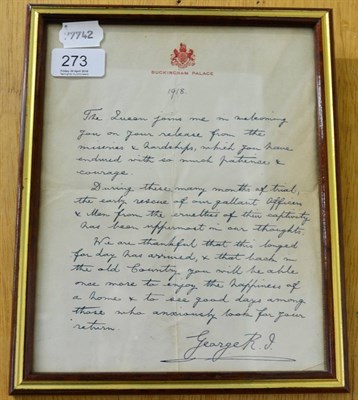 7742
273
BUCKINGHAM PALACE
1918.
The Queen joins me in welcoming
you on your release from the
miseries & hardships, which you have
endured with so much patience &
courage.
During these many months of trial,
the early rescue of our gallant Officers
& Men from the cruelties of their captivity
has been uppermost in our thoughts.
We are thankful that this longed
for day has arrived, & that back in
the old Country you will be able
once more to enjoy the happiness of
a home & to see good days among
those who anxiously look for your
return.
George R.I.